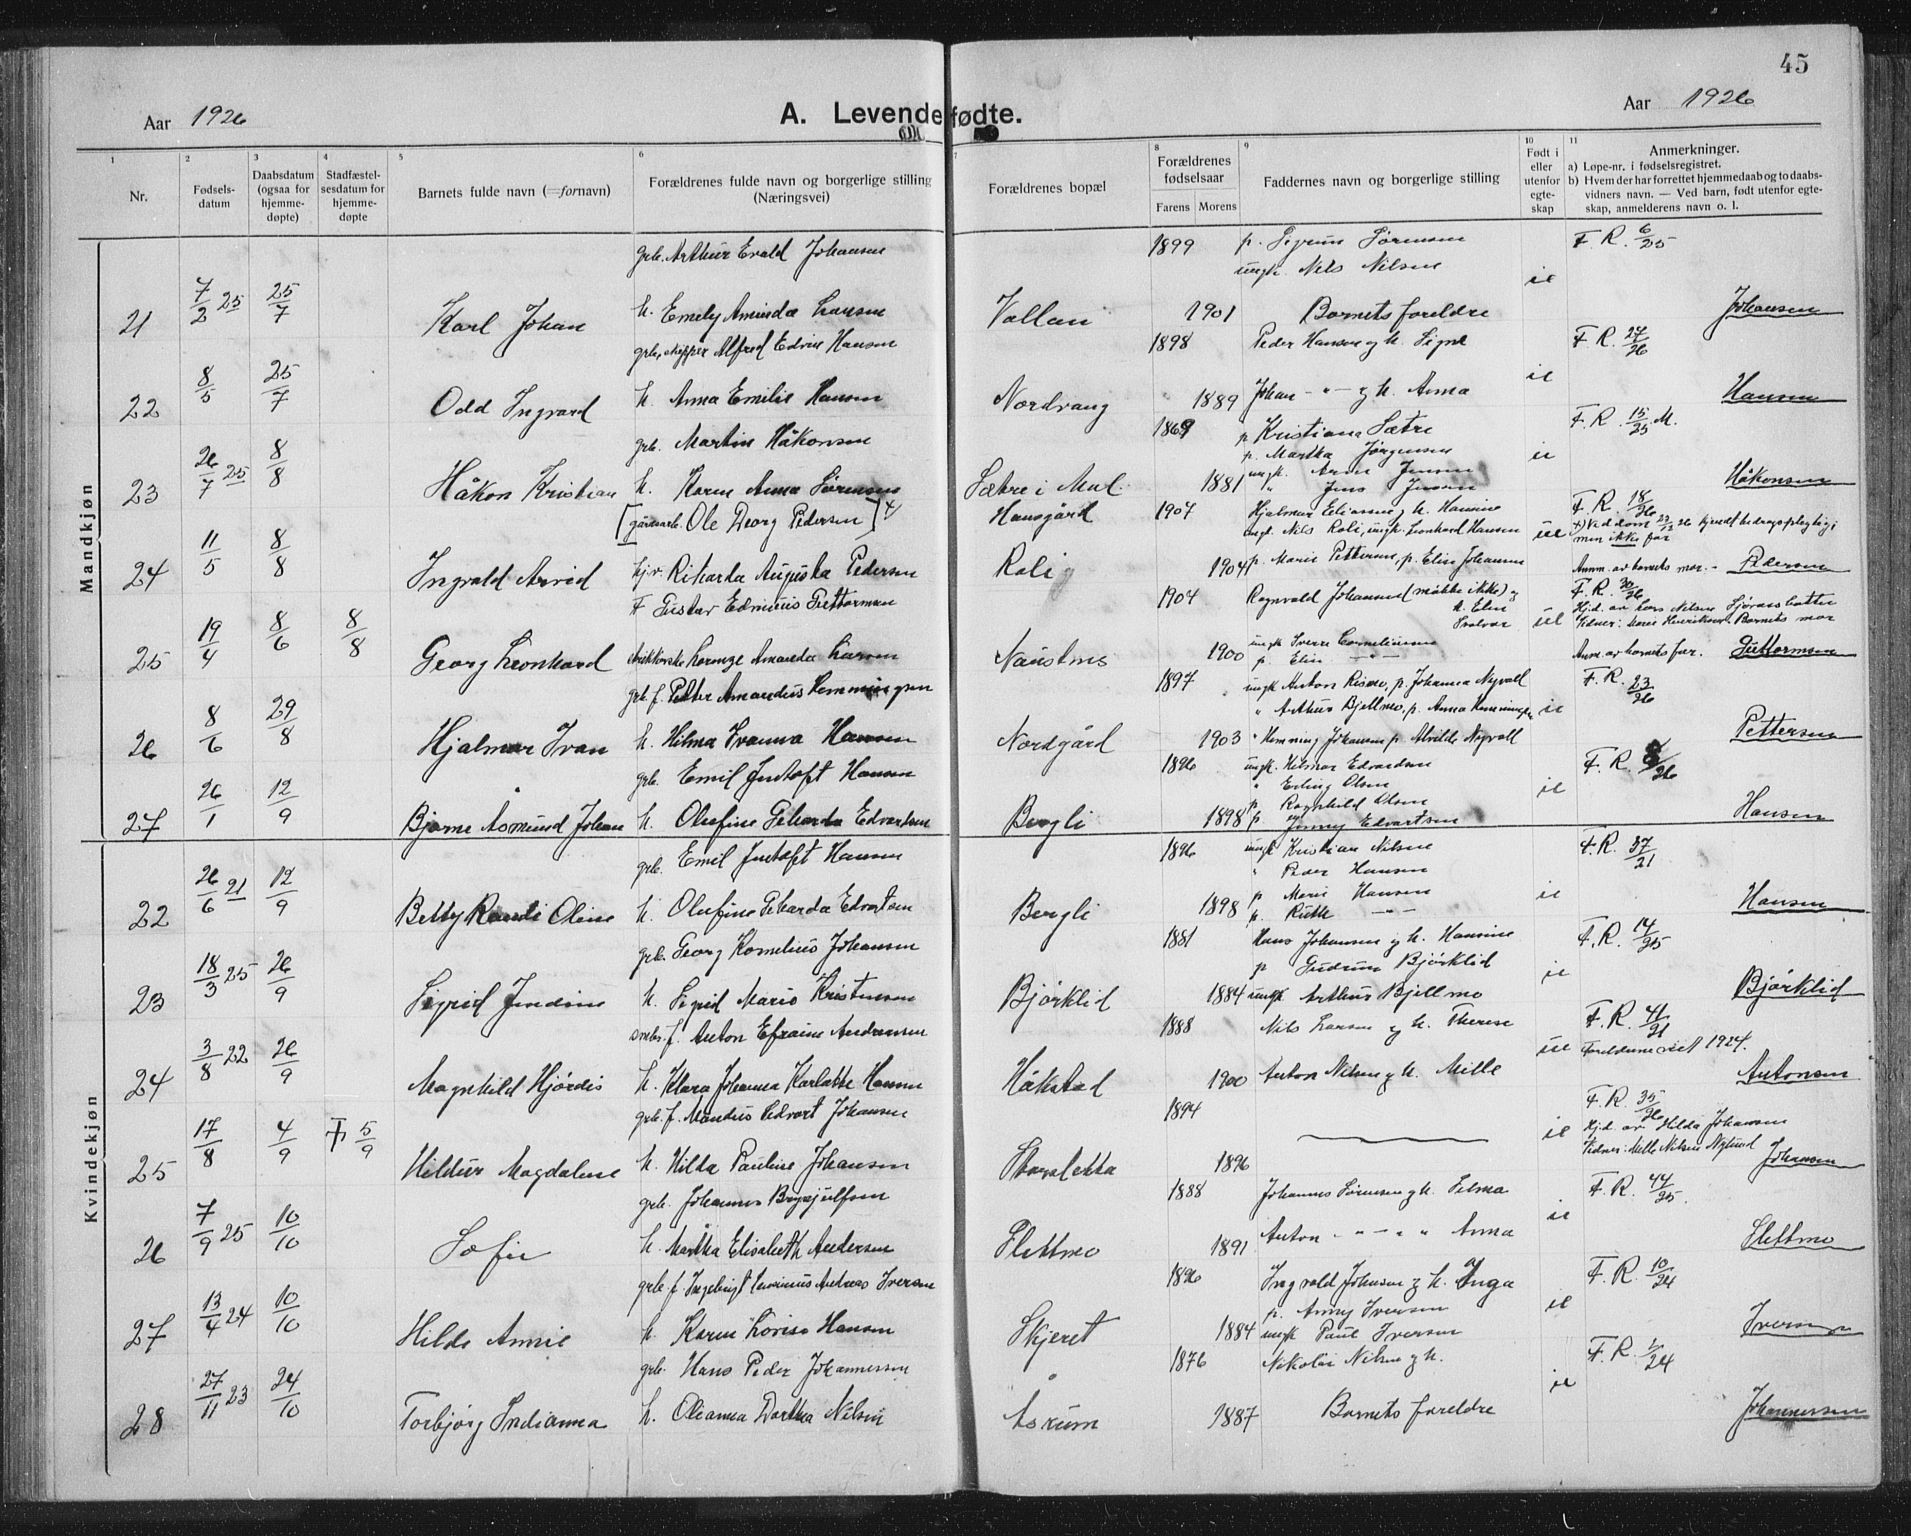 45
Aar 1926
A. Levendefødte.
Aar 1926
1 2 3 4 5 6 7 8 9 10 11
Nr.
Fødsels-
datum
Daabsdatum
(ogsaa for
hjemme-
døpte)
Stadfæstel-
sesdatum for
hjemme-
døpte
Barnets fulde navn (=fornavn)
Forældrenes fulde navn og borgerlige stilling
(Næringsvei)
Forældrenes bopæl
Forældrenes
fødselsaar
Farens Morens
Faddernes navn og borgerlige stilling
Født i
eller
utenfor
egte-
skap
Anmerkninger.
a) Løpe-nr. i fødselsregistret.
b) Hvem der har forrettet hjemmedaab og to daabs-
vidners navn. — Ved barn, født utenfor egte-
skap, anmelderens navn o. l.
Mandkjøn
grb. Arthur Evald Johansen 1899 p. Sigrun Sørensen F. R. 6/25
ungk. Nils Nilsen
21 7/2 25 25/7 Karl Johan h. Emely Aminda Larsen 1901 Barnets foreldre ie Johansen
Alfred Edvin Hansen 1898 Peder Hansen og h. Signe F. R. 27/26
22 8/5 25/7 Odd Ingvard h. Anna Emilie Hansen Nordvang 1889 Johan -"- og h. Anna ie Hansen
grb. Martin Håkonsen 1869 p. Kristiana Sætre F. R. 15/25 M.
p. Martha Jørgensen
ungk. Arne Jensen
23 26/7 25 8/8 Håkon Kristian h. Karen Anna Sørensen Sætre i Mal. 1881 " Jens Jensen ie Håkonsen
[gårdsarb. Ole Georg Pedersen] Hansgård 1907 Hjalmar Eliassen og h. Hansine F. R. 18/26
ungk. Nils Roli, ungk. Leonhard Hansen
men ikke far
24 11/5 8/8 Ingvald Arvid Rikarda Augusta Pedersen Rolig 1904 p. Marie Pettersen, p. Elise Johansen ue Anm. av barnets mor. - Pedersen
F Gustav Edmius Guttormsen 1904 Ragnvald Johansen (møtte ikke) og F. R. 30/26
h. Elin
25 19/4 8/6 8/8 Georg Leonhard Amanda Larsen 1900 ungk. Sverre Cornelius­sen ue Anm. av barnets far. Guttormsen
p. Elin -"-
grb. f. Petter Amandus Hemmingsen 1897 ungk. Anton Rismo, p. Johanna Nyvoll F. R. 23/26
" Arthur Bjellmo, p. Anna Hemmingsen
26 8/6 29/8 Hjalmar Ivan h. Hilma Ivanna Hansen Nordgård 1903 " Hemming Johansen p. Alvilde Nyvoll ie Pettersen
grb. Emil Justoft Hansen 1896 ungk. Hilmar Edvardsen F. R. 8/26
" Erling Olsen
p. Ragnhild Olsen
27 26/1 12/9 Bjarne Asmund Johan h. Olufine Geharda Edvartsen Bergli 1898 p. Jenny Edvartsen ie Hansen
Kvindekjøn
grb. Emil Justoft Hansen 1896 ungk. Kristian Nilsen F. R. 37/21
" Peder Hansen
p. Marie Hansen
22 26/6 21 12/9 Betty Randi Oline h. Olufine Geharda Edvartsen Bergli 1898 p. Ruth -"- ie Hansen
grb. Georg Kornelius Johansen 1881 Hans Johansen og h. Hansine F. R. 14/25
p. Gudrun Bjørklid
23 18/3 25 26/9 Sigrid Jendine h. Sigrid Marie Kristensen Bjørklid 1884 ungk. Arthur Bjellmo ie Bjørklid
f. Anton Efraim Andreassen 1888 Nils Larsen og h. Therese F. R. 41/21
1924.
24 3/8 22 26/9 Magnhild Hjørdis h. Klara Johanna Karlotte Hansen Håkstad 1900 Anton Nilsen og h. Mille ue Antonsen
grb. f. Mandius Edvart Johansen 1894 F. R. 35/26
Hj.d. av Hilda Johansen
Vidner: Mille Nilsen Nylund
25 17/8 4/9 5/9 Hildur Magdalene h. Hilda Pauline Johansen Storsletta 1896 ie Johansen
grb. Johannes Brynjulfsen 1888 Johannes Sørensen og h. Selma F. R. 44/25
26 7/9 25 10/10 Sofie h. Martha Elisabeth Andersen Slettmo 1891 Anton -"- " " Anna ie Slettmo
grb. f. Ingebrigt Andreas Iversen 1896 Ingvald Johansen og h. Inga F. R. 10/24
p. Anny Iversen
27 13/4 24 10/10 Hilda Annie h. Karen Lovise Hansen Skjeret 1884 ungk Paul Iversen ie Iversen
grb. Hans Peder Johannessen 1876 Nikolai Nilsen og h. F. R. 1/24
28 27/11 23 24/10 Torbjørg Indianna h. Oleanna Dorthea Nilsen Åsrum 1887 Barnets foreldre ie Johannessen